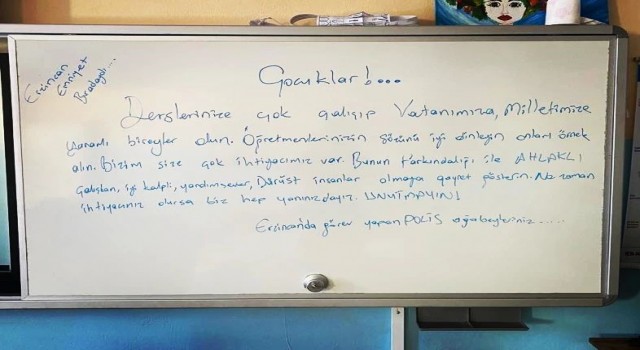 Erzincan
Emniyet
Buradaydı....
Çocuklar!...
Derslerinize çok çalışıp Vatanımıza, Milletimize
yararlı bireyler olun. Öğretmenlerinizin sözünü iyi dinleyin onları örnek
alın. Bizim size çok ihtiyacımız var. Bunun farkındalığı ile AHLAKLI
çalışkan, iyi kalpli, yardımsever, Dürüst insanlar olmaya gayret gösterin. Ne zaman
ihtiyacınız olursa biz hep yanınızdayız. UNUTMAYIN!
Erzincan'da görev yapan POLİS ağabeyleriniz.....